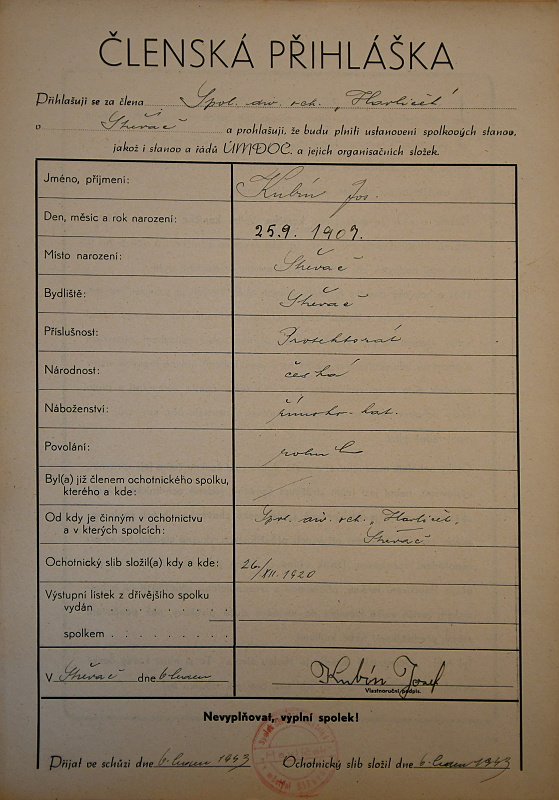 ČLENSKÁ PŘIHLÁŠKA
Přihlašuji se za člena Spol. div. och. „Havlíček"
v Střevač a prohlašuji, že budu plniti ustanovení spolkových stanov,
jakož i stanov a řádů ÚMDOČ. a jejich organisačních složek.
Jméno, příjmení: Kubín Jos.
Den, měsíc a rok narození: 25.9. 1909.
Místo narození: Střevač
Bydliště: Střevač
Příslušnost: Protektorát
Národnost: česká
Náboženství: římsko-kat.
Povolání: rolník
Byl(a) již členem ochotnického spolku,
kterého a kde:
Od kdy je činným v ochotnictvu Spol. div. och. „Havlíček",
a v kterých spolcích: Střevač
Ochotnický slib složil(a) kdy a kde: 26./XII. 1920
Výstupní lístek z dřívějšího spolku
vydán . . . . . . . .
spolkem . . . . . . . .
V Střevač dne 6 březen Kubín Josef
Vlastnoruční podpis.
Nevyplňovat, vyplní spolek!
Přijat ve schůzi dne 6. březen 1943 Ochotnický slib složil dne 6. březen 1943